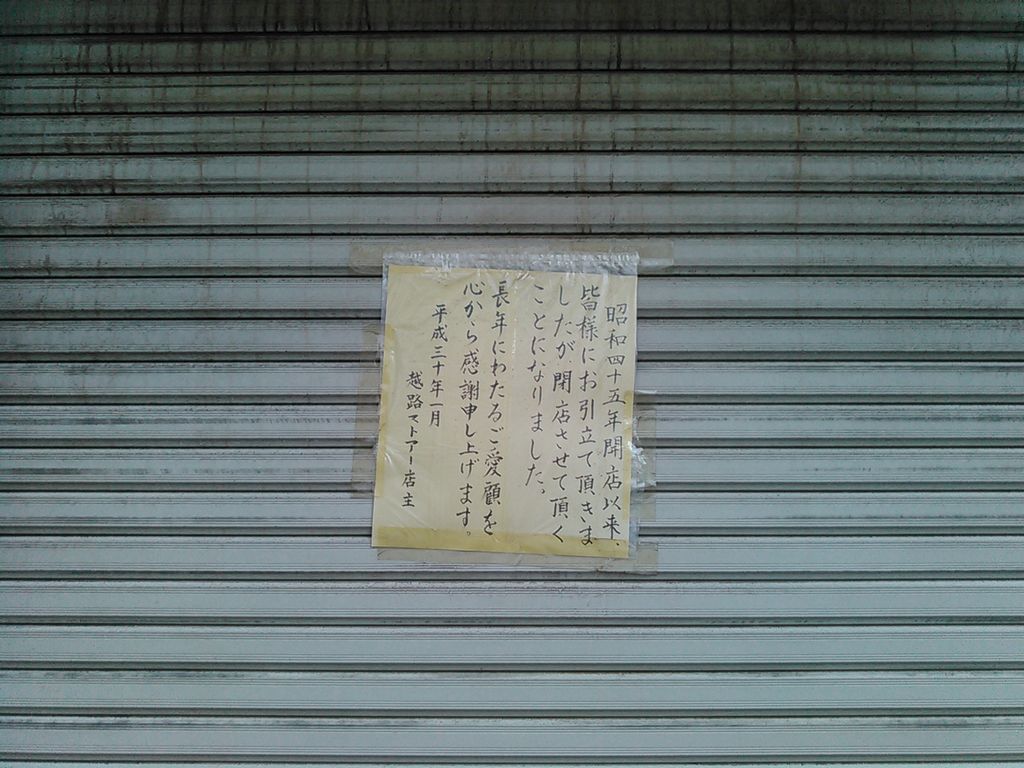 昭和四十五年開店以来、
皆様にお引立て頂きま
したが、閉店させて頂く
ことになりました。
長年にわたるご愛顧を
心から感謝申し上げます。
平成三十年一月
越路ストアー店主